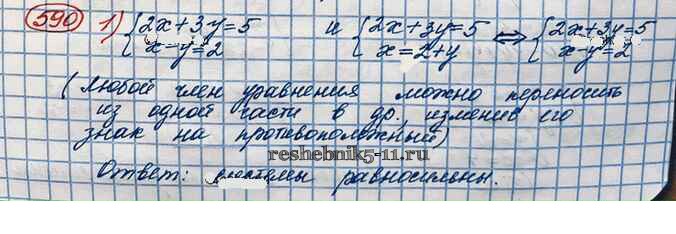 590 1) {2x+3y=5 x-y=2 и {2x+3y=5 x=2+y ⇔ {2x+3y=5 x-y=2
(Любой член уравнения можно переносить
из одной части в др., изменив его
знак на противоположный)
reshebnik5-11.ru
Ответ: системы равносильны.